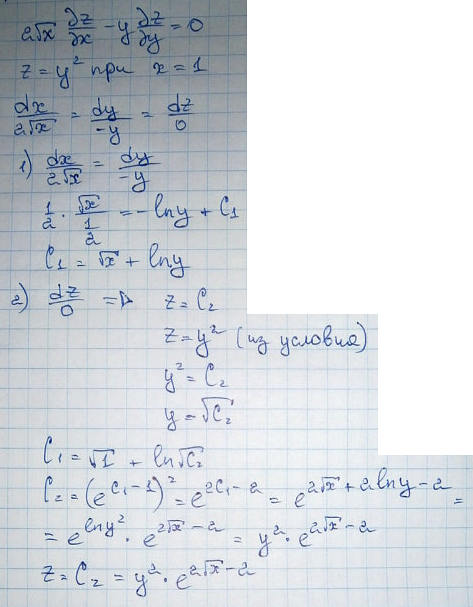 2√x ∂z/∂x − y ∂z/∂y = 0
z = y² при x = 1
dx/2√x = dy/−y = dz/0
1) dx/2√x = dy/−y
1/2 · √x/(1/2) = −lny + C₁
C₁ = √x + lny
2) dz/0 => z = C₂
z = y² (из условия)
y² = C₂
y = √C₂
C₁ = √1 + ln√C₂
C₂ = (e^(C₁−1))² = e^(2C₁−2) = e^(2√x + 2lny − 2) =
= e^(lny²) · e^(2√x−2) = y² · e^(2√x−2)
z = C₂ = y² · e^(2√x−2)